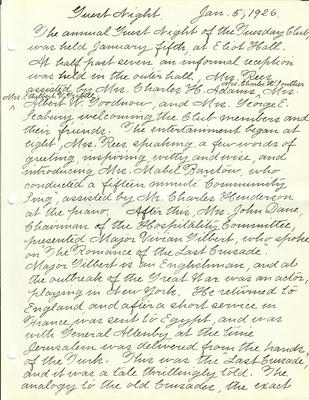 Guest Night. Jan. 5, 1926.
The annual Guest Night of the Tuesday Club,
was held January fifth, at Eliot Hall.
At half past seven an informal reception
was held in the outer hall, Mrs. Rees
Mrs. Charles W.
assisted by Mrs. Charles H. Adams, Mrs.
Mrs.
Albert W. Goodnow, and Mrs. George E.
Seabury, welcoming the Club members and
their friends. The entertainment began at
eight, Mrs. Rees speaking a few words of
greeting, inspiring, witty and wise, and
introducing Mrs. Mabel Barstow, who
conducted a fifteen minute Community
Sing, assisted by Mr. Charles Henderson
at the piano. After this, Mrs. John Dane,
Chairman of the Hospitality Committee,
presented Major Vivian Gilbert, who spoke
on "The Romance of the Last Crusade.
Major Gilbert is an Englishman, and at
the outbreak of the Great War was an actor,
playing in New York. He returned to
England and after a short service in
France, was sent to Egypt, and was
with General Allenby at the time
Jerusalem was delivered from the hands
of the Turk. This was the "Last Crusade,"
and it was a tale thrillingly told. The
analogy to the old Crusades, the exact